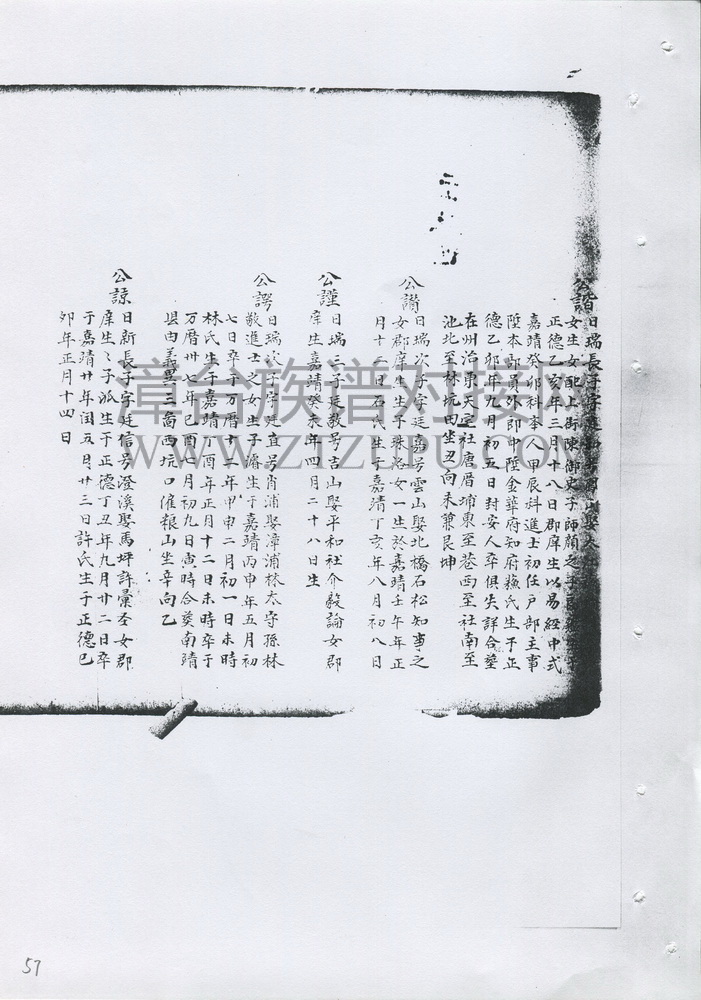 公諧 日瑞長子字
女生女配上街陳御史子師顏之
正德乙亥年三月十八日郡庠生以易經中式
嘉靖癸卯科本 甲辰科進士初任戶部主事
陞本部員外郎中陞金華府知府蘓氏生于正
德乙卯年九月初五日封安人卒俱失詳合塟
在州治東天 社唐厝埔東至巷西至社南至
池北至林坑田坐丑向未兼艮坤
公讚 日瑞次子字廷嘉号雲山娶北橋石松知事之
女郡庠生生子殊洛女一生於嘉靖壬午年正
月十二日石氏生于嘉靖丁亥年八月初八日
公謹 日瑞三子廷敎号吉山娶平和社介毅諭女郡
庠生嘉靖癸未年四月二十八日生
公諤 日瑞次子字廷直号肖浦娶漳浦林太守孫林
敬進士之女生子濬生于嘉靖丙申年五月初
七日卒于万曆十二年甲申二月初一日未時
林氏生于嘉靖丁酉年正月十二日未時卒于
万曆卅七年己酉七月初九日寅時合葵南靖
县由義里三啚西坑口催粮山坐辛向乙
公諒 日新長子字廷信号澄溪娶馬坪許彙圣女郡
庠生生子派生于正德丁丑年九月廿二日卒
于嘉靖廿年閏五月廿三日許氏生于正德己
卯年正月十四日
漳台族谱对接网
WWW.ZTZUPU.COM
57